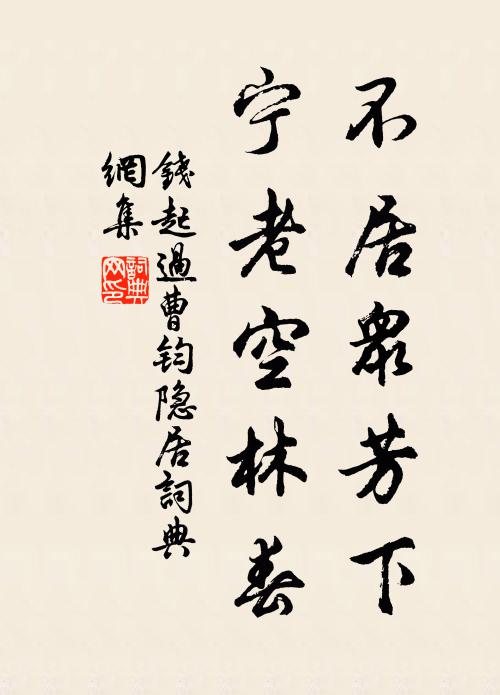 不居眾芳下
宁老空林春
錢起過曹钧隐居詞典
網集
詞典網印